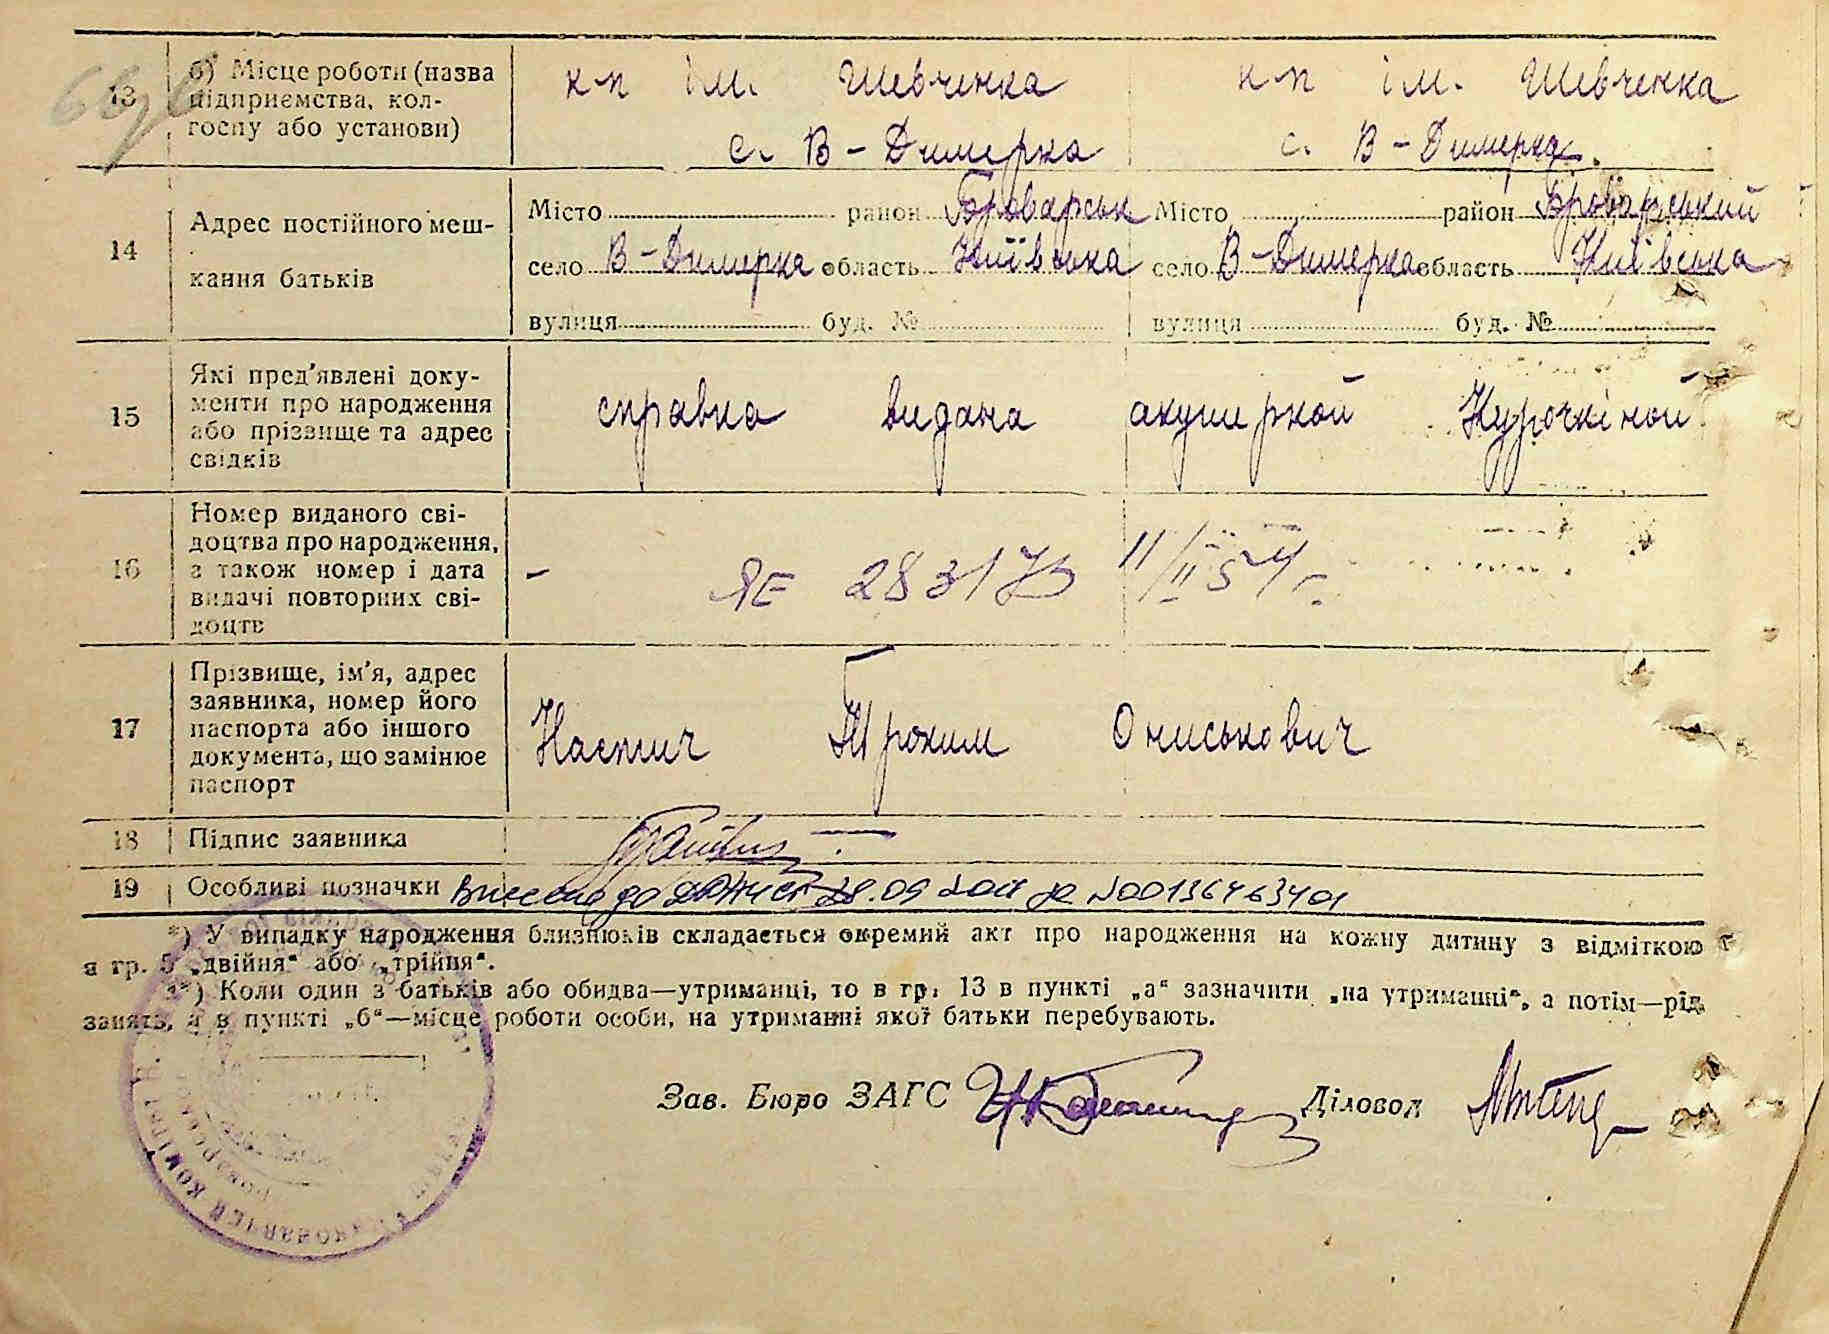 13 б) Місце роботи (назва підприємства, колгоспу або установи)
к-п ім. Шевченка к-п ім. Шевченка
с. В-Димерка с. В-Димерка.
14 Адрес постійного мешкання батьків
Місто район Броварськ Місто район Броварський
село В-Димерка область Київська село В-Димерка область Київська
вулиця буд. № вулиця буд. №
15 Які пред'явлені документи про народження або прізвище та адрес свідків
справка видана акушеркой Курочкіной
16 Номер виданого свідоцтва про народження, а також номер і дата видачі повторних свідоцтв
- ЯЕ 283173 11/II 54 г.
17 Прізвище, ім'я, адрес заявника, номер його паспорта або іншого документа, що замінює паспорт
Трохим Ониськович
18 Підпис заявника
19 Особливі позначки Внесено до 28.09 00136463401
*) У випадку народження близнюків складається окремий акт про народження на кожну дитину з відміткою
в гр. 5 „двійня“ або „трійня“.
**) Коли один з батьків або обидва—утриманці, то в гр. 13 в пункті „а“ зазначити „на утриманні“, а потім—рід
занять, а в пункті „б“—місце роботи особи, на утриманні якої батьки перебувають.
Зав. Бюро ЗАГС Діловод